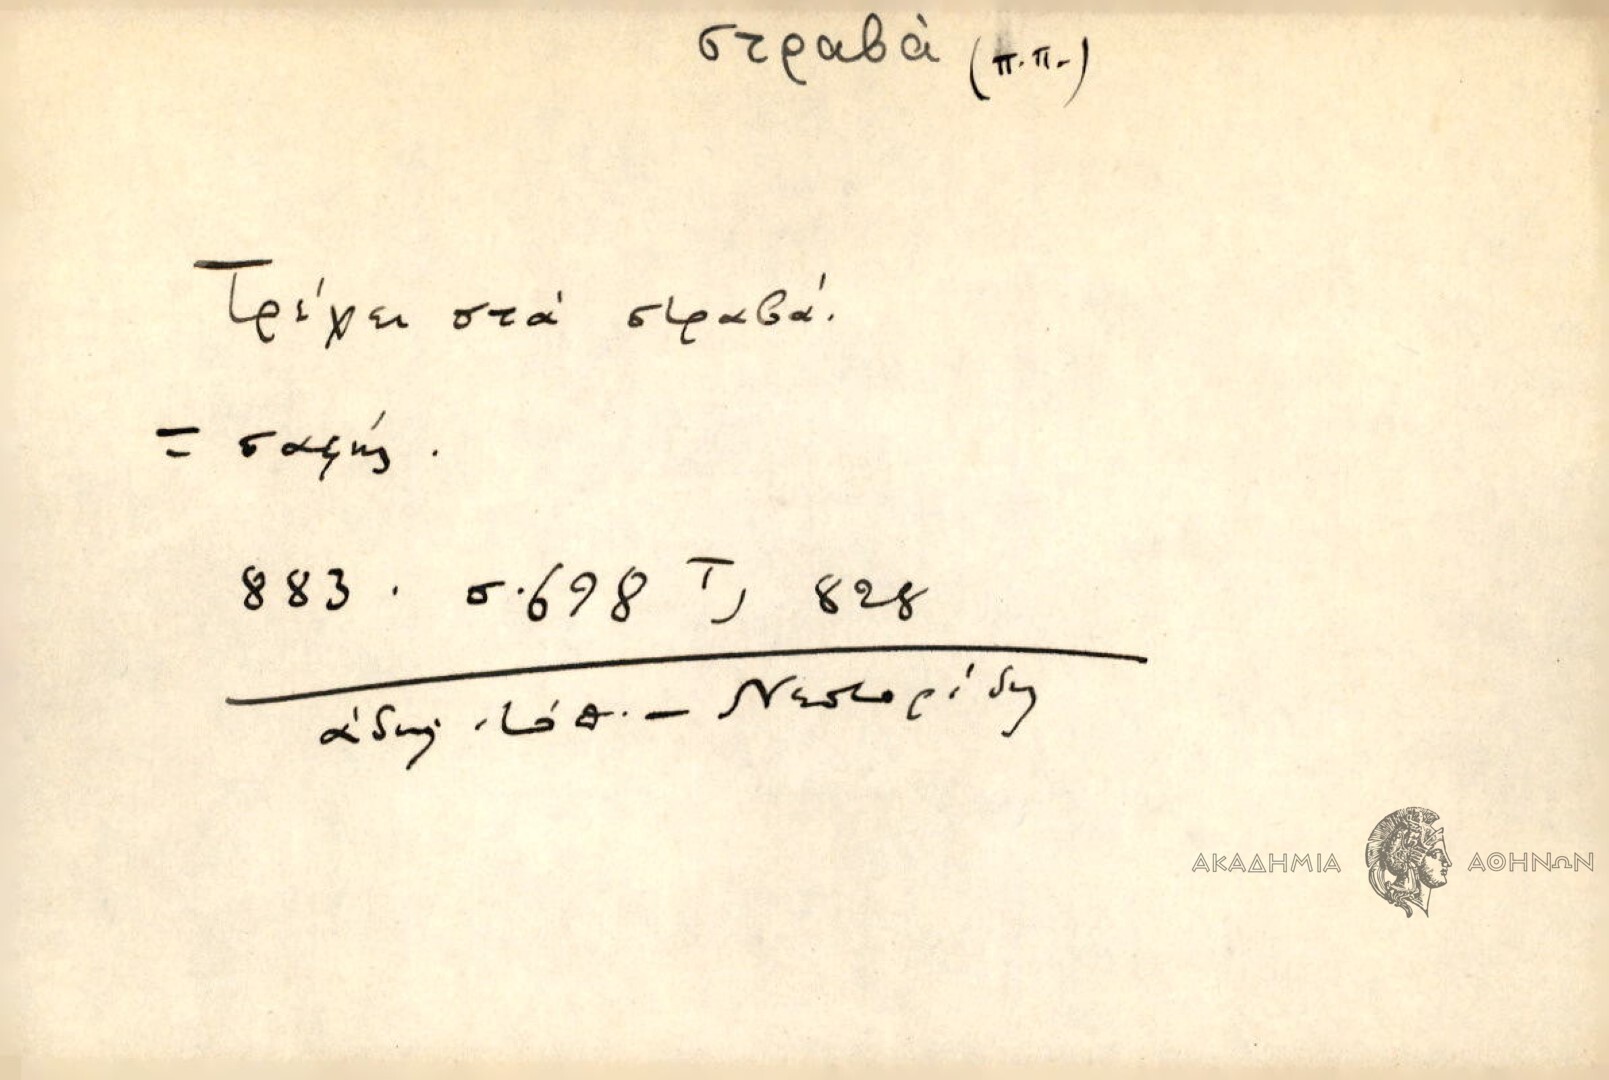 στραβὰ (π.π.)
Τρέχει στά στραβά.
= σαφής.
883. σ. 698 Τ, 828
ἄδηλ. τόπ. — Νεστορίδη
ΑΚΑΔΗΜΙΑ ΑΘΗΝΩΝ